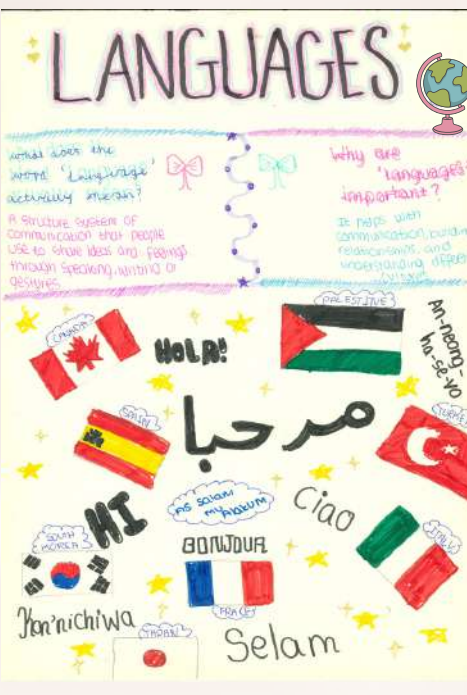 LANGUAGES
what does the
word 'Language'
actually mean?
A structure system of
communication that people
use to share ideas and feelings
through speaking, writing or
gestures
Why are
'languages'
important?
It helps with
communication, buildin
relationships, and
understanding differen
CANADA
HOLA!
PALESTINE
An-neong-
ha-se-yo
SPAIN
مرحبا
TURKEY
HI
AS Salam
mualakum
Ciao
SOUTH
KOREA
BONJOUR
ITALY
FRACE
Kon'nichiwa
JAPAN
Selam